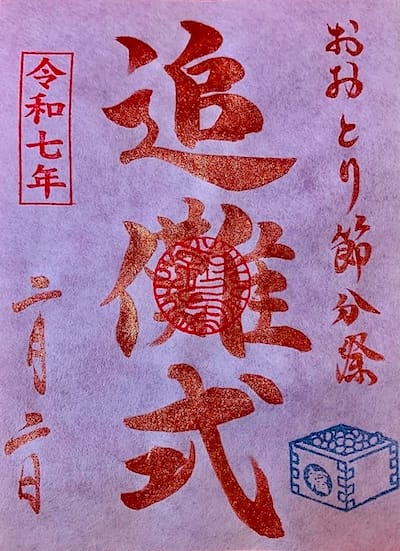 おおとり節分祭
追儺式
令和七年
二月二日